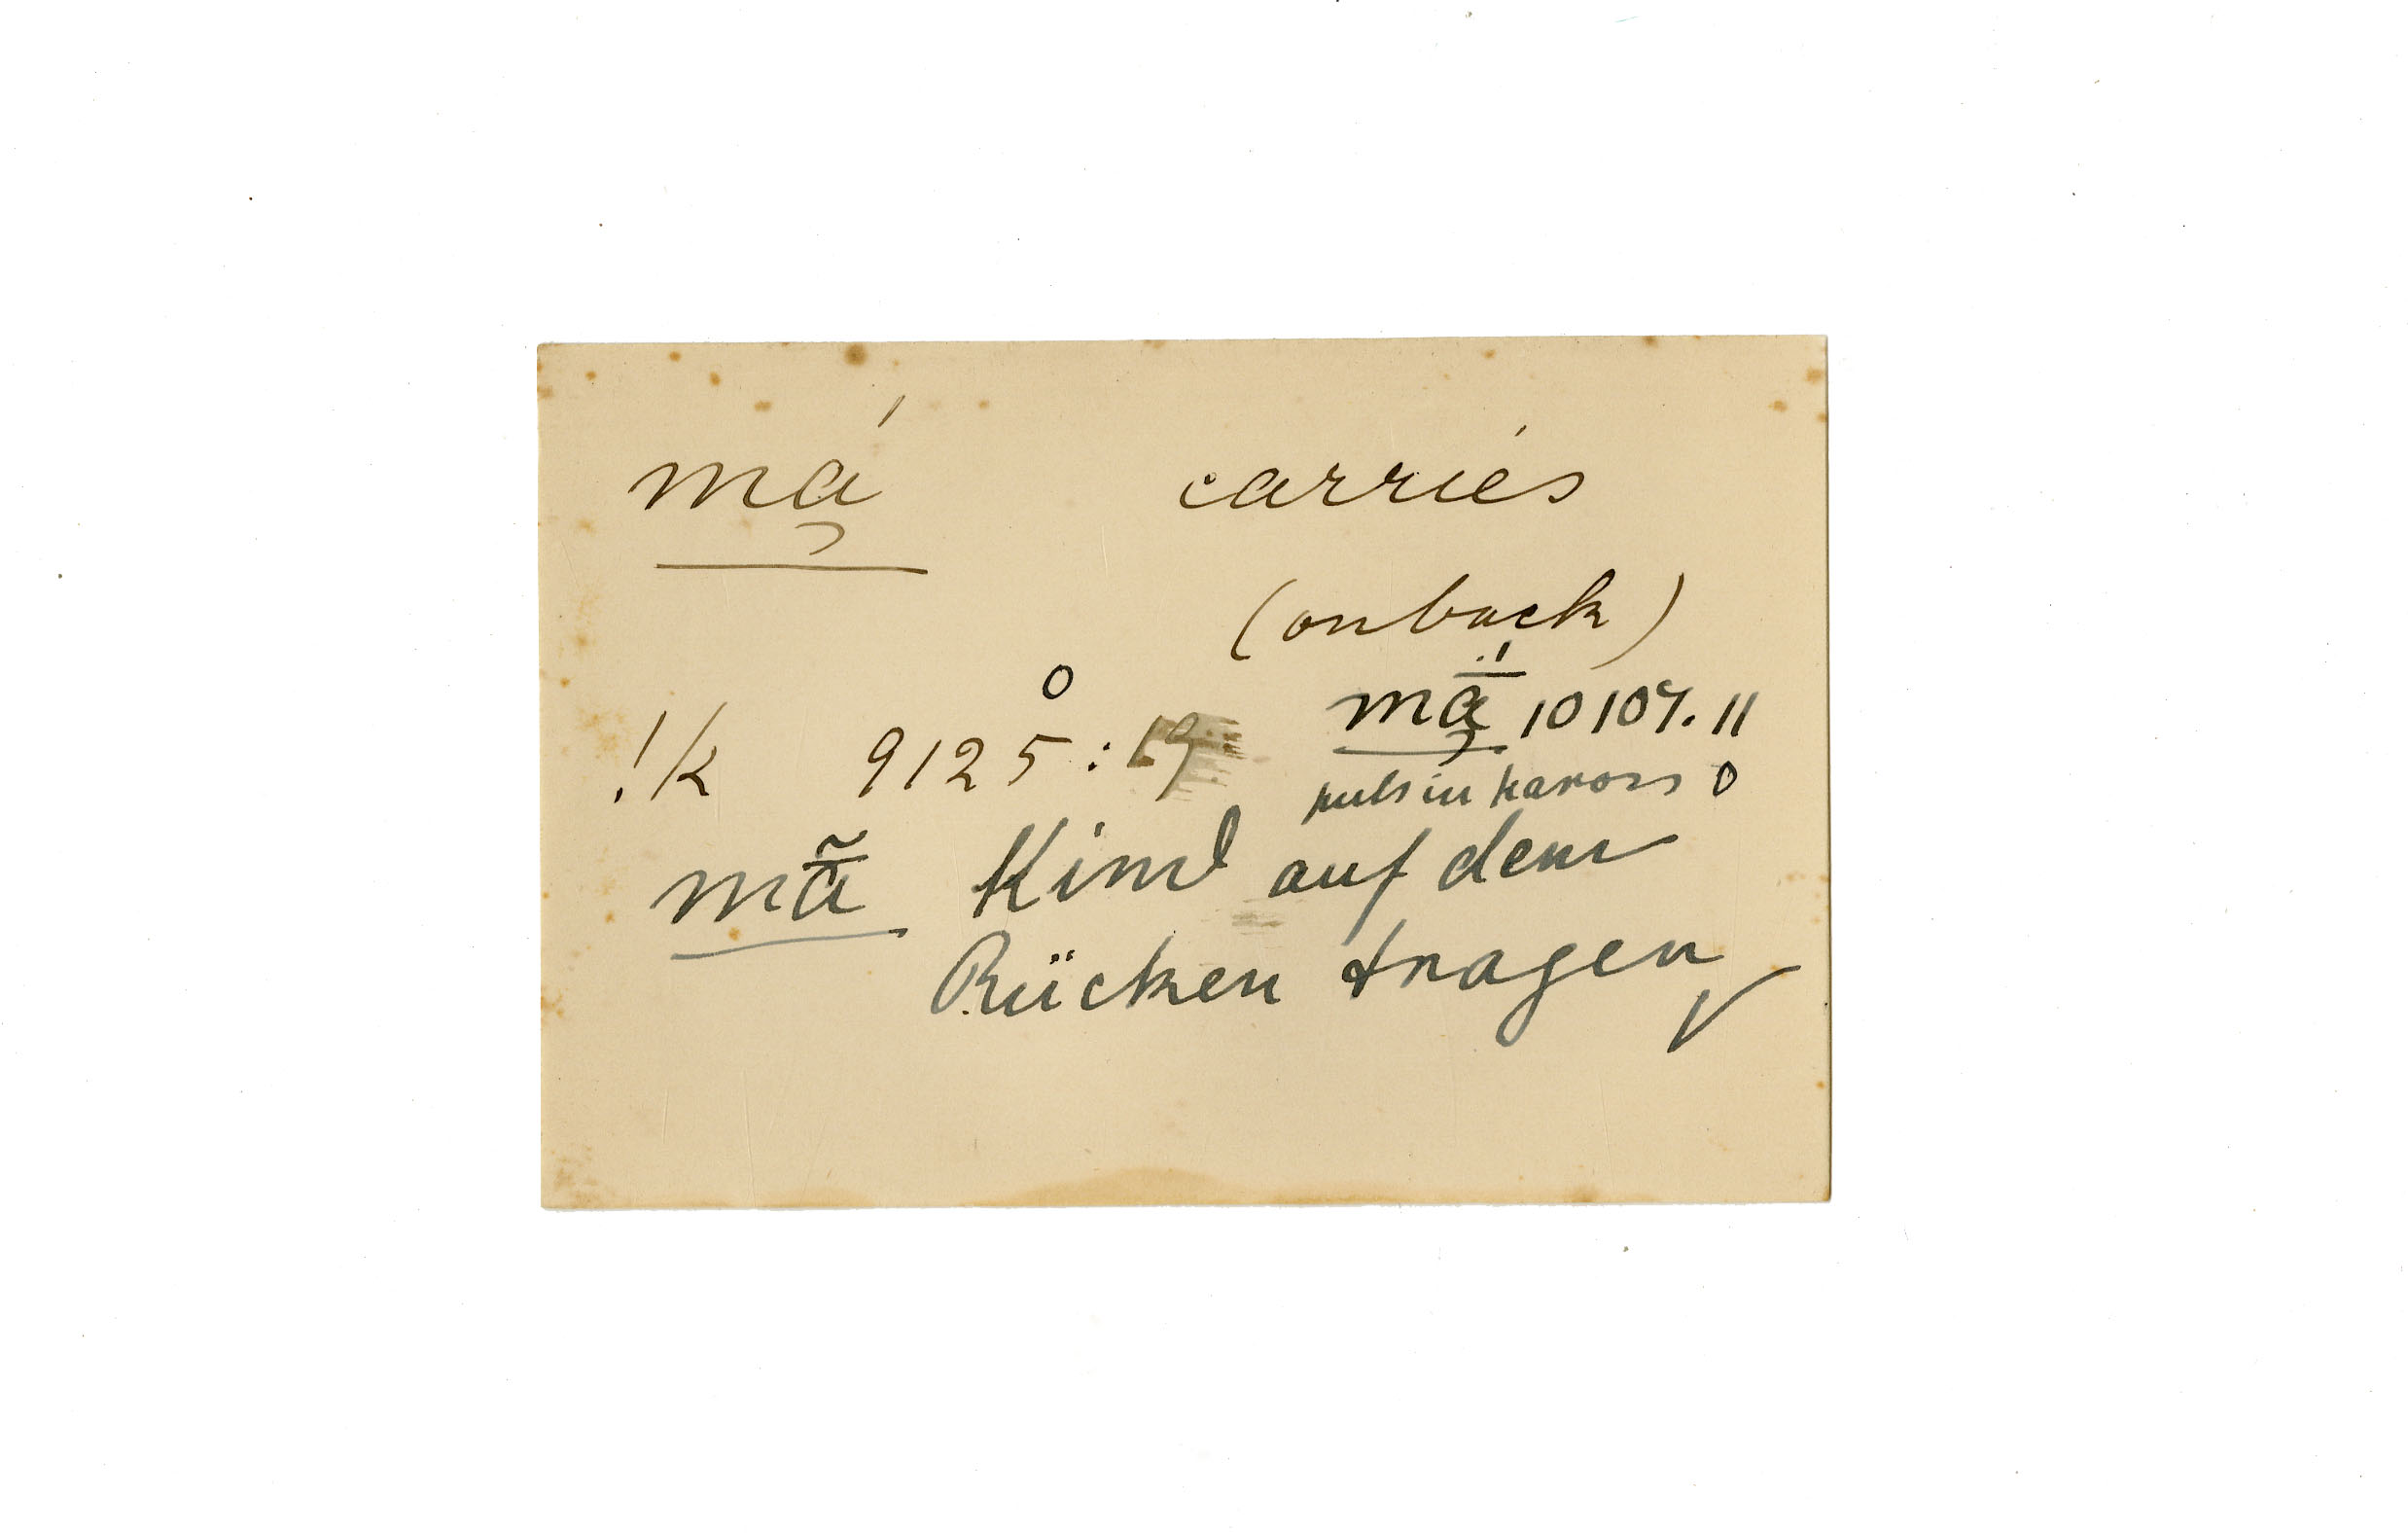 má̜ carries
(on back)
!k 9125:19 mā̜́ 10107.11
O puts in kaross O
mā̃ Kind auf dem
Rücken tragen